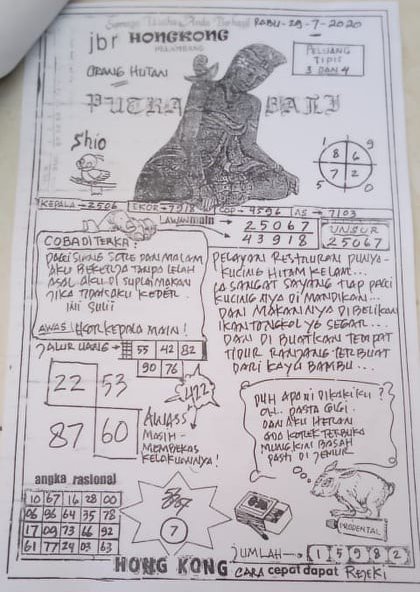 Semoga Usaha Anda Berhasil RABU-29-7-2020
jbr HONGKONG
ORANG HUTAN
PELUANG
TIPIS
3 DAN 4
PUTRA BALI
Shio
1 9
8 6
7 2
5 0
KEPALA=2506 EKOR=7918 COP=9596 AS=7103
LAWAN main 25067
43918
UNSUR
25067
COBA DI TERKA?
DARI SIANG SORE DAN MALAM
AKU BEKERJA TANPA LELAH
ASAL AKU DI SUPLAI MAKAN
JIKA TIDAK AKU KEDER
INI SULIT
AWAS! HOT KEPALA MAIN!
PELAYAN RESTAURAN PUNYA
KUCING HITAM KELAM...
IA SANGAT SAYANG TIAP PAGI
KUCING NYA DI MANDIKAN...
DAN MAKANNYA DI BELIKAN
IKAN TONGKOL YG SEGAR...
DAN DI BUATKAN TEMPAT
TIDUR RANJANG TERBUAT
DARI KAYU BAMBU...
JALUR UANG= 55 42 82
90 76
22 53
87 60
422
AWASS
MASIH-
MEMBEKAS
KELAKUANNYA!
DUH APA NI DI KAKIKU?
OH.. PASTA GIGI.
DAN AKU HERAN
ADA KOTEK TERBUKA
MUNGKIN BASAH
PASTI DI JEMUR
angka rasional
10 67 16 28 00
06 96 64 35 78
17 09 73 66 92
61 77 24 03 63
7
PRODENTAL
JUMLAH→ 1 5 9 8 2
HONG KONG CARA cepat dapat REJEKI